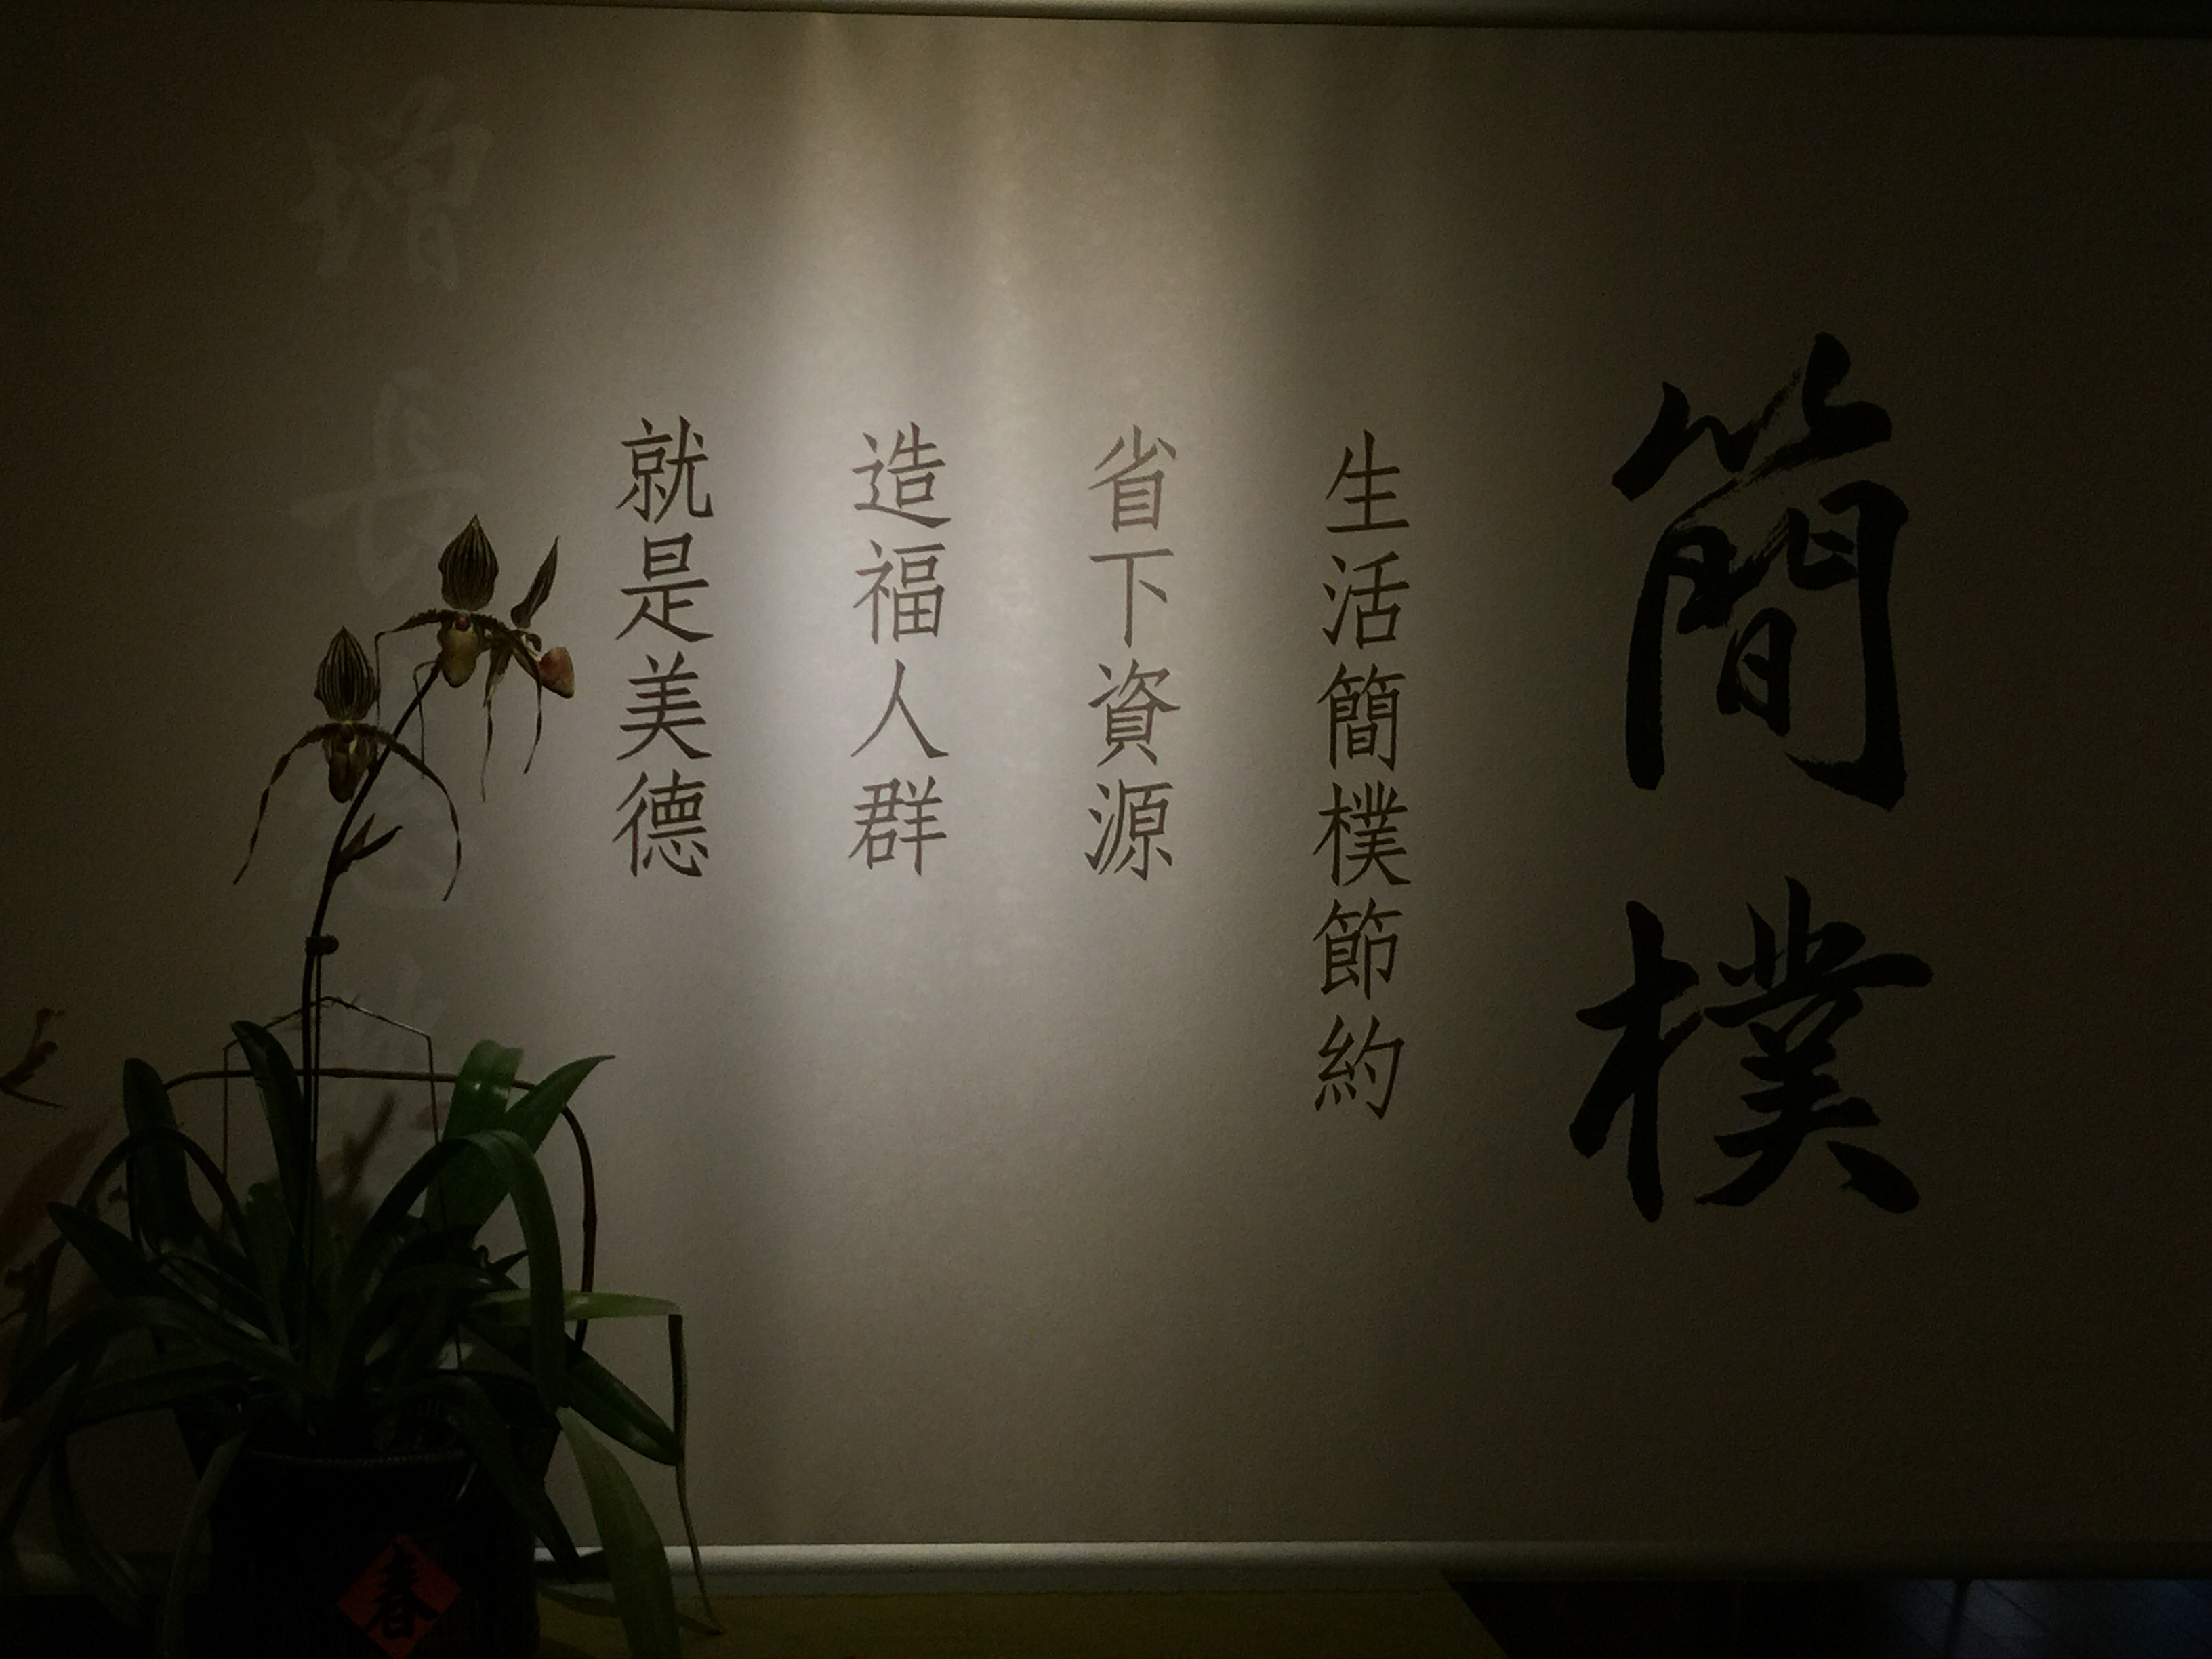 簡樸
生活簡樸節約
省下資源
造福人群
就是美德
增長
春